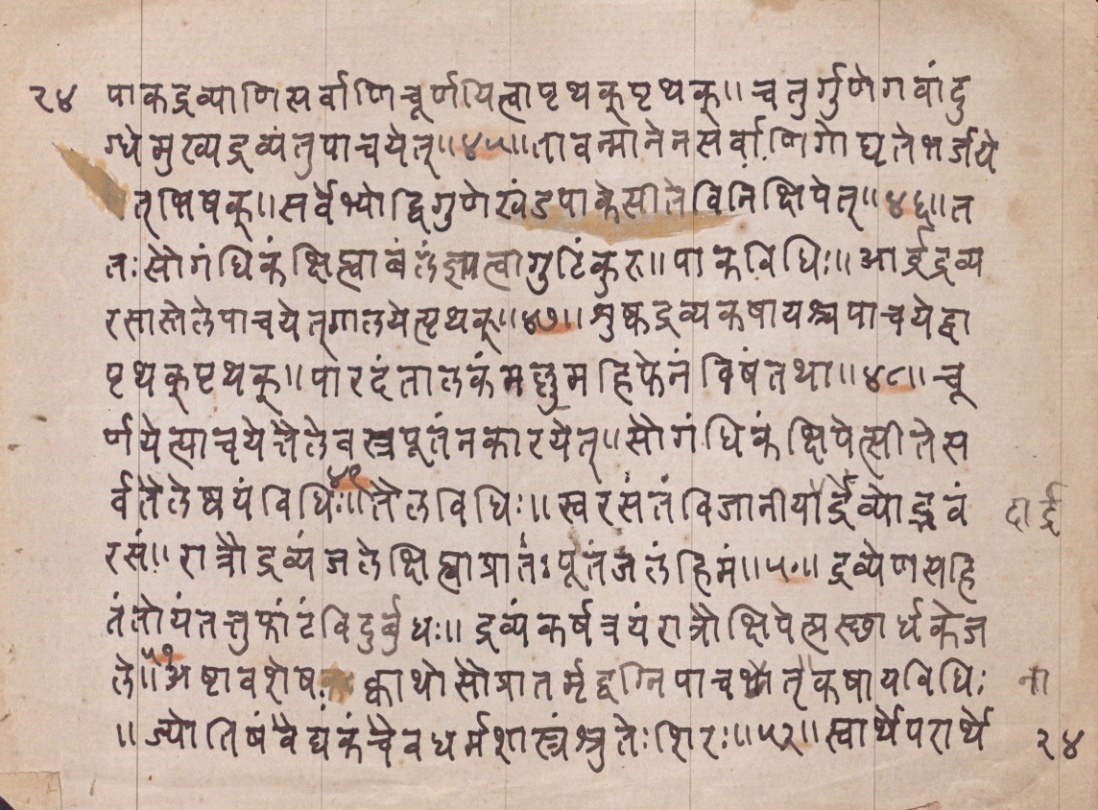 २४ पाकद्रव्याणिसर्वाणिचूर्णयित्वापृथक्पृथक्॥चतुर्गुणेगवांदु
ग्धेमुख्यद्रव्यंतुपाचयेत्॥४५॥तावन्मानेनसर्वाणिगोघृतेभर्जये
त्भिषक्॥सर्वेभ्योद्विगुणेखंडपाकेसीतेविनिक्षिपेत्॥४६॥त
तःसौगंधिकंक्षिप्त्वाबलंज्ञात्वागुटिंकुरु॥पाकविधिः॥आर्द्रद्रव्य
रसास्तेलेपाचयेत्गालयेत्पृथक्॥४७॥शुष्कद्रव्यकषायश्चपाचयेद्वा
पृथक्पृथक्॥पारदंतालकंमल्लुमहिफेनंविषंतथा॥४८॥चू
र्णयेत्पाचयेत्तैलेवस्त्रपूतंनकारयेत्॥सौगंधिकंक्षिपेत्सीतेस
र्वतैलेष्वयंविधिः॥४९॥तैलविधिः॥स्वरसंतंविजानीयार्द्रव्योद्भवं दार्द्र
रसं॥रात्रौद्रव्यंजलेक्षिप्त्वाप्रातःपूतंजलंहिमं॥५०॥द्रव्येणसहि
तंतोयंतत्तुफांटंविदुर्बुधः॥द्रव्यंकर्षत्रयंरात्रौक्षिपेत्प्रस्छार्धकेज
ले॥५१॥अष्टावशेष क्वाथोसौप्रातर्मृद्वग्निपाचनैत्कषायविधिः ना
॥ज्योतिषंवैद्यकंचैवधर्मशास्त्रंश्रुतेःशिरः॥५२॥स्वार्थेपरार्थे २४